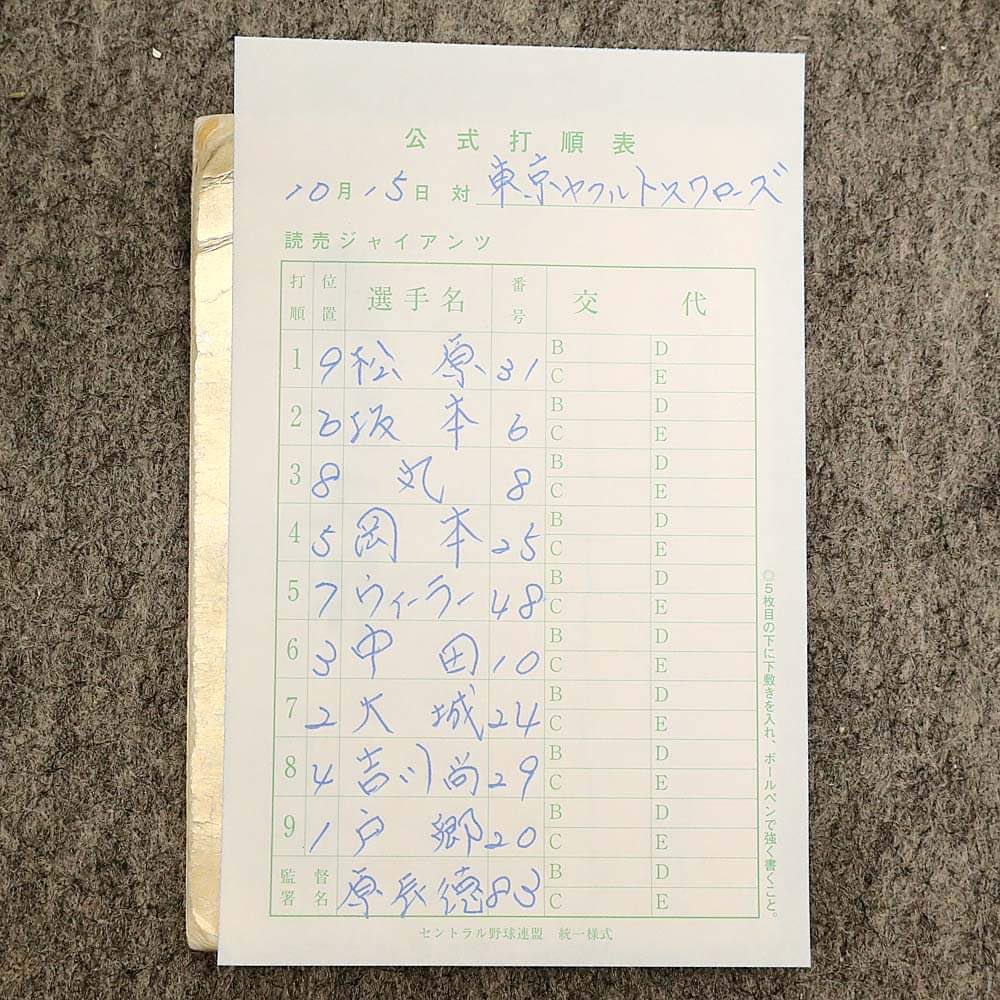 公式打順表
10月15日 対 東京ヤクルトスワローズ
読売ジャイアンツ
打順 位置 選手名 番号 交代
1 9 松原 31 B D
C E
2 6 坂本 6 B D
C E
3 8 丸 8 B D
C E
4 5 岡本 25 B D
C E
5 7 ウィーラー 48 B D
C E
6 3 中田 10 B D
C E
7 2 大城 24 B D
C E
8 4 吉川尚 29 B D
C E
9 1 戸郷 20 B D
C E
監督署名 原辰徳 83 B D
C E
◎5枚目の下に下敷きを入れ、ボールペンで強く書くこと。
セントラル野球連盟 統一様式